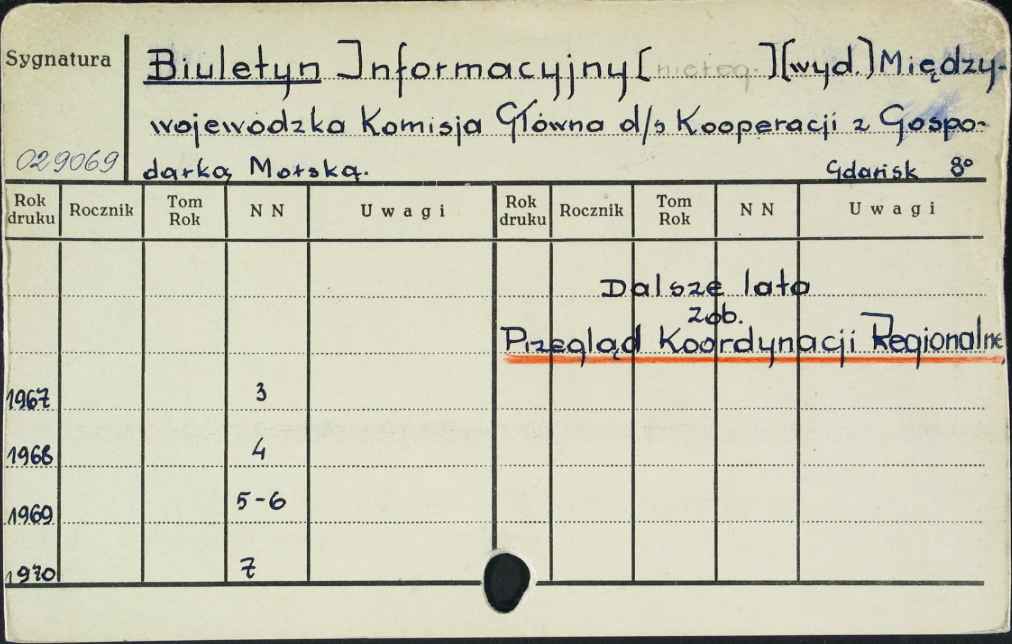 Sygnatura
Biuletyn Informacyjny [ ] [wyd.) Między-
wojewódzka Komisja Główna d/s Kooperacji z Gospo-
029069 darką Morską. Gdańsk 8°
Rok druku Rocznik Tom Rok N N Uwagi Rok druku Rocznik Tom Rok N N Uwagi
Dalsze lata
zob.
Przegląd Koordynacji Regionalne
1967 3
1968 4
1969 5-6
1970 7